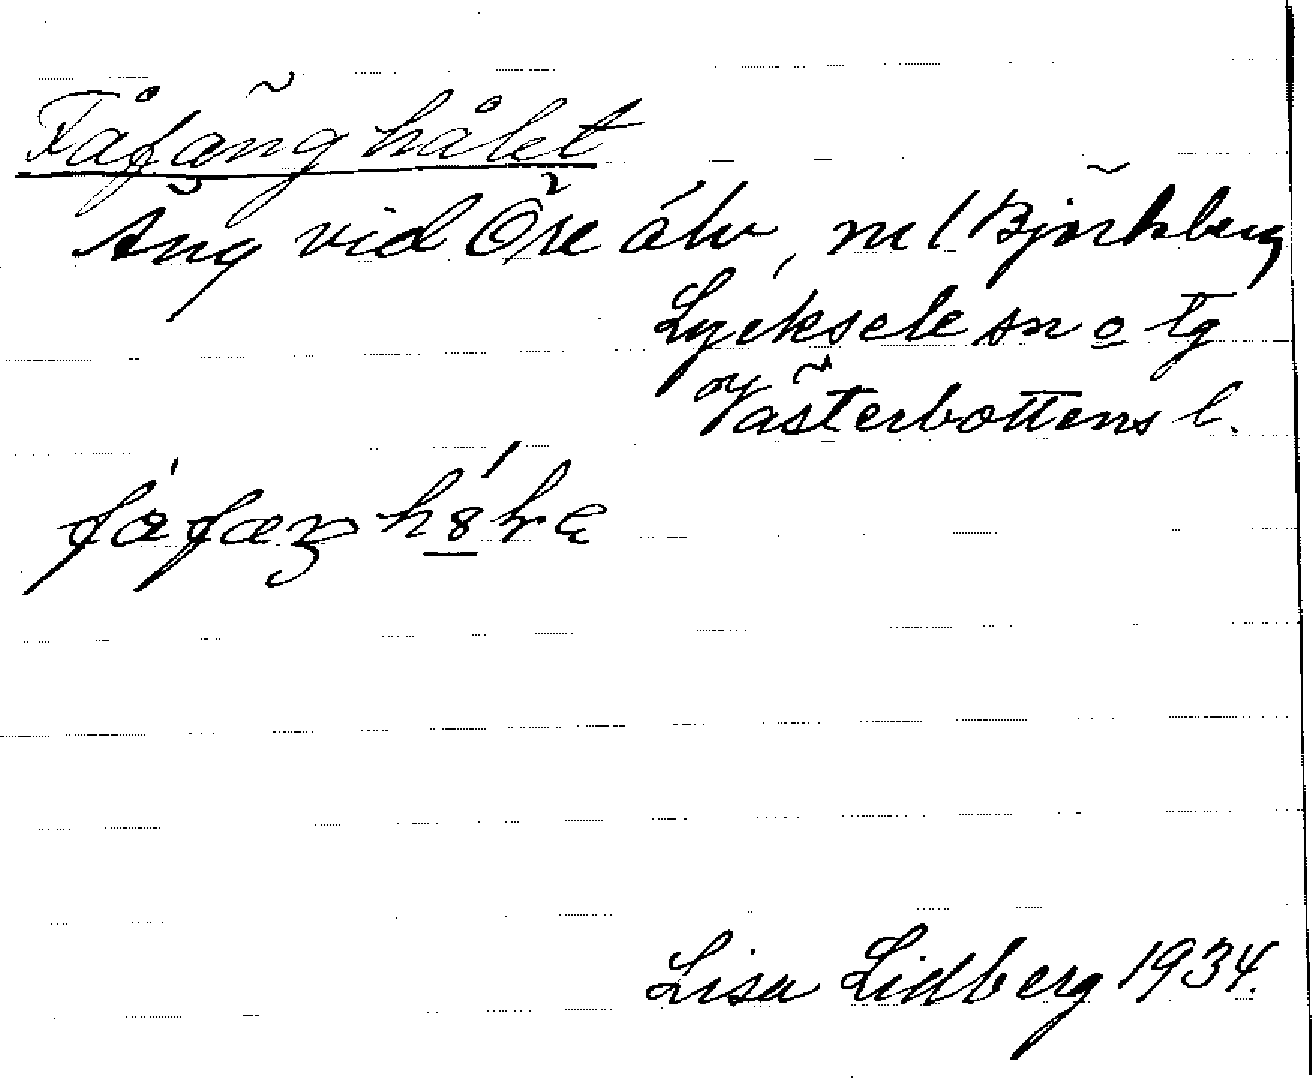 Fåfänghålet
Äng vid Öre älv, m/ Björkberg
Lycksele sn o tg
Västerbottens l.
Lisa Lidberg 1934.